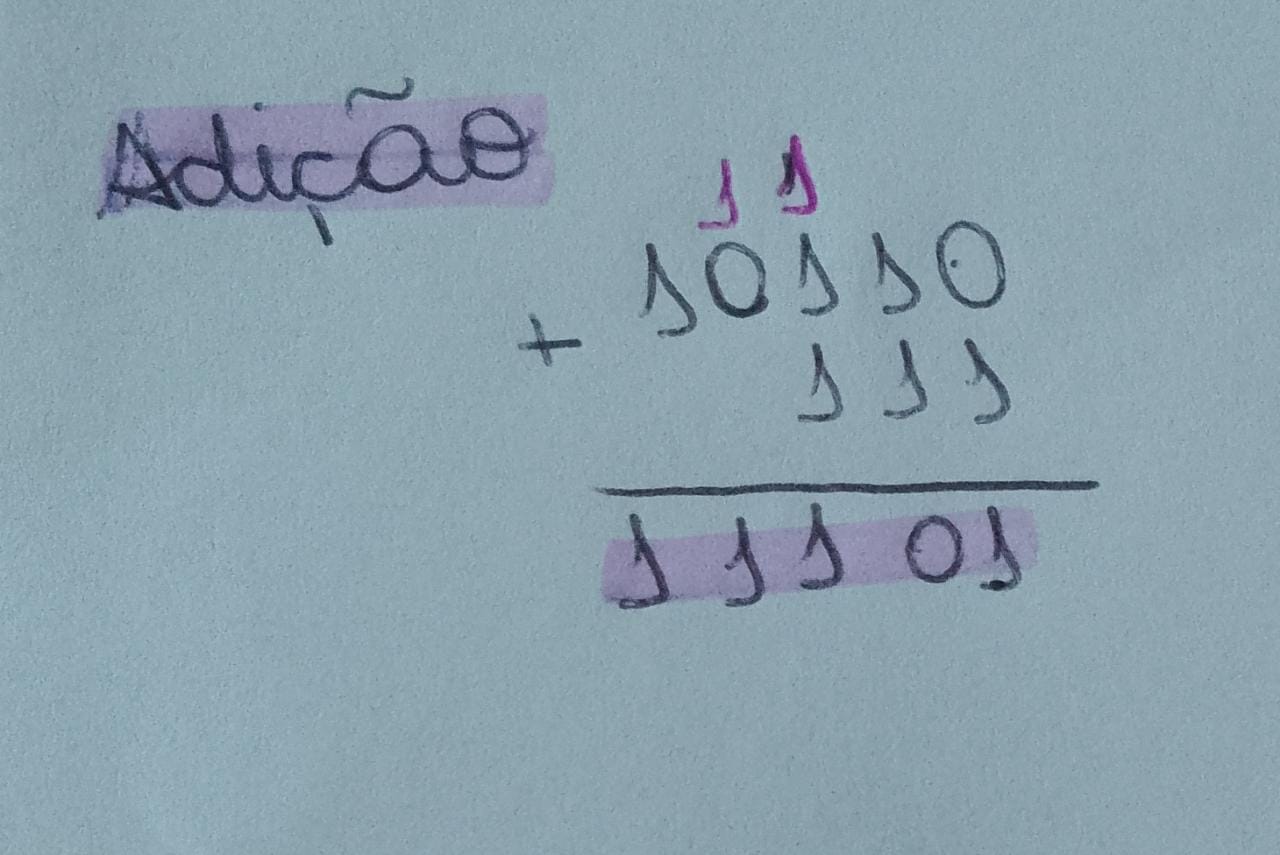 Adição
1 1
10110
+
111
11101